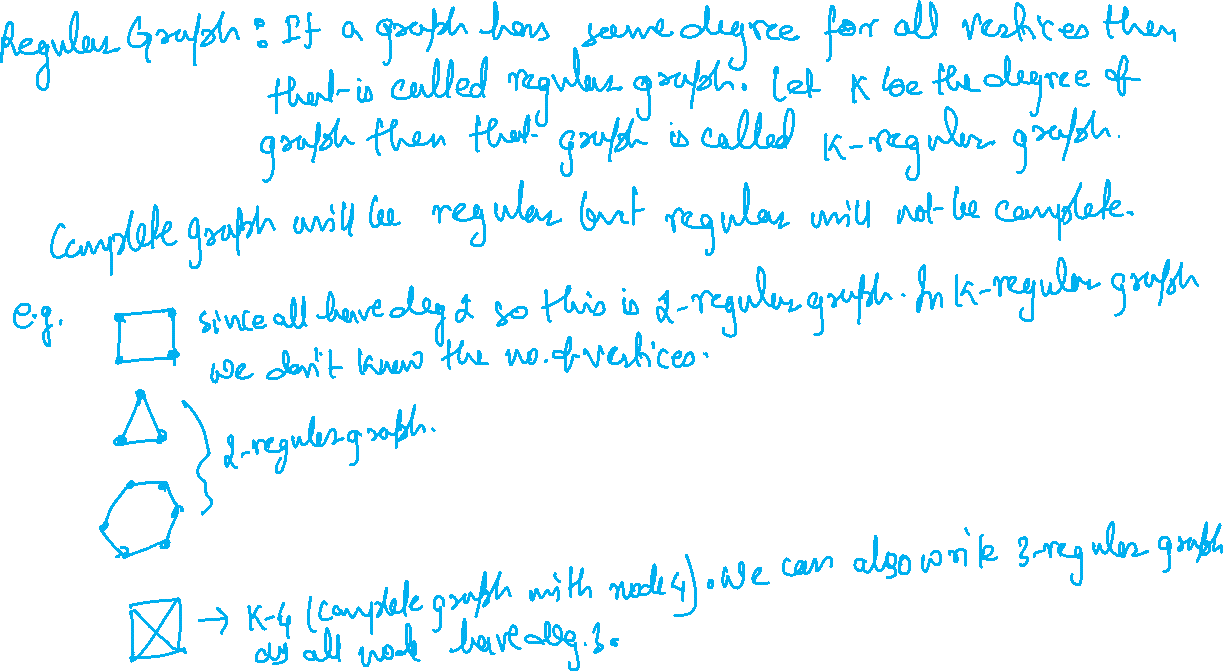 Regular Graph : If a graph has same degree for all vertices then
that is called regular graph. Let K be the degree of
graph then that graph is called K-regular graph.
Complete graph will be regular but regular will not be complete.
e.g. since all have deg 2 so this is 2-regular graph. In K-regular graph
we don't know the no. of vertices.
2-regular graph.
→ K-4 (Complete graph with node 4). We can also write 3-regular graph
as all node have deg. 3.